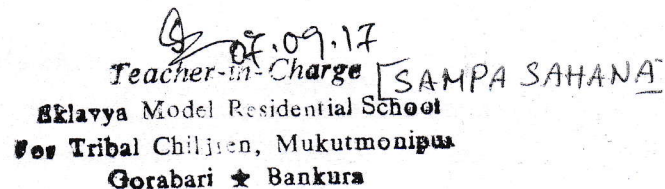 07.09.17
Teacher-in-Charge [SAMPA SAHANA
Eklavya Model Residential School
For Tribal Children, Mukutmonipur
Gorabari ★ Bankura